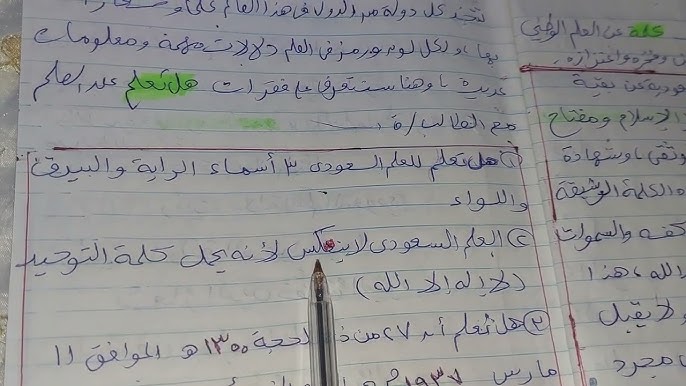 تتخذ كل دولة من الدول في هذا العالم علم
بها، ولكل لون ورمز في العلم دلالات مهمة ومعلومات
عديدة، وهنا سنتعرف على فقرات هل تعلم عن العلم
مع الطالب/ة
① هل تعلم للعلم السعودي ٣ أسماء الراية والبيرق
واللواء
② العلم السعودي لا ينكس لأنه يحمل كلمة التوحيد
(لا إله إلا الله)
③ هل تعلم أن ٢٧ من ذي الحجة ١٣٠٠ هـ الموافق ١١
مارس ١٩٣٧ م
كلمة عن العلم الوطني
وفخره واعتزازه
عن بقية
الإسلام ومفتاح
وتقى، وشهادة
الكلمة الوثيقة
كفه والسموات
الله، هذا
ولا يقبل
مجرد